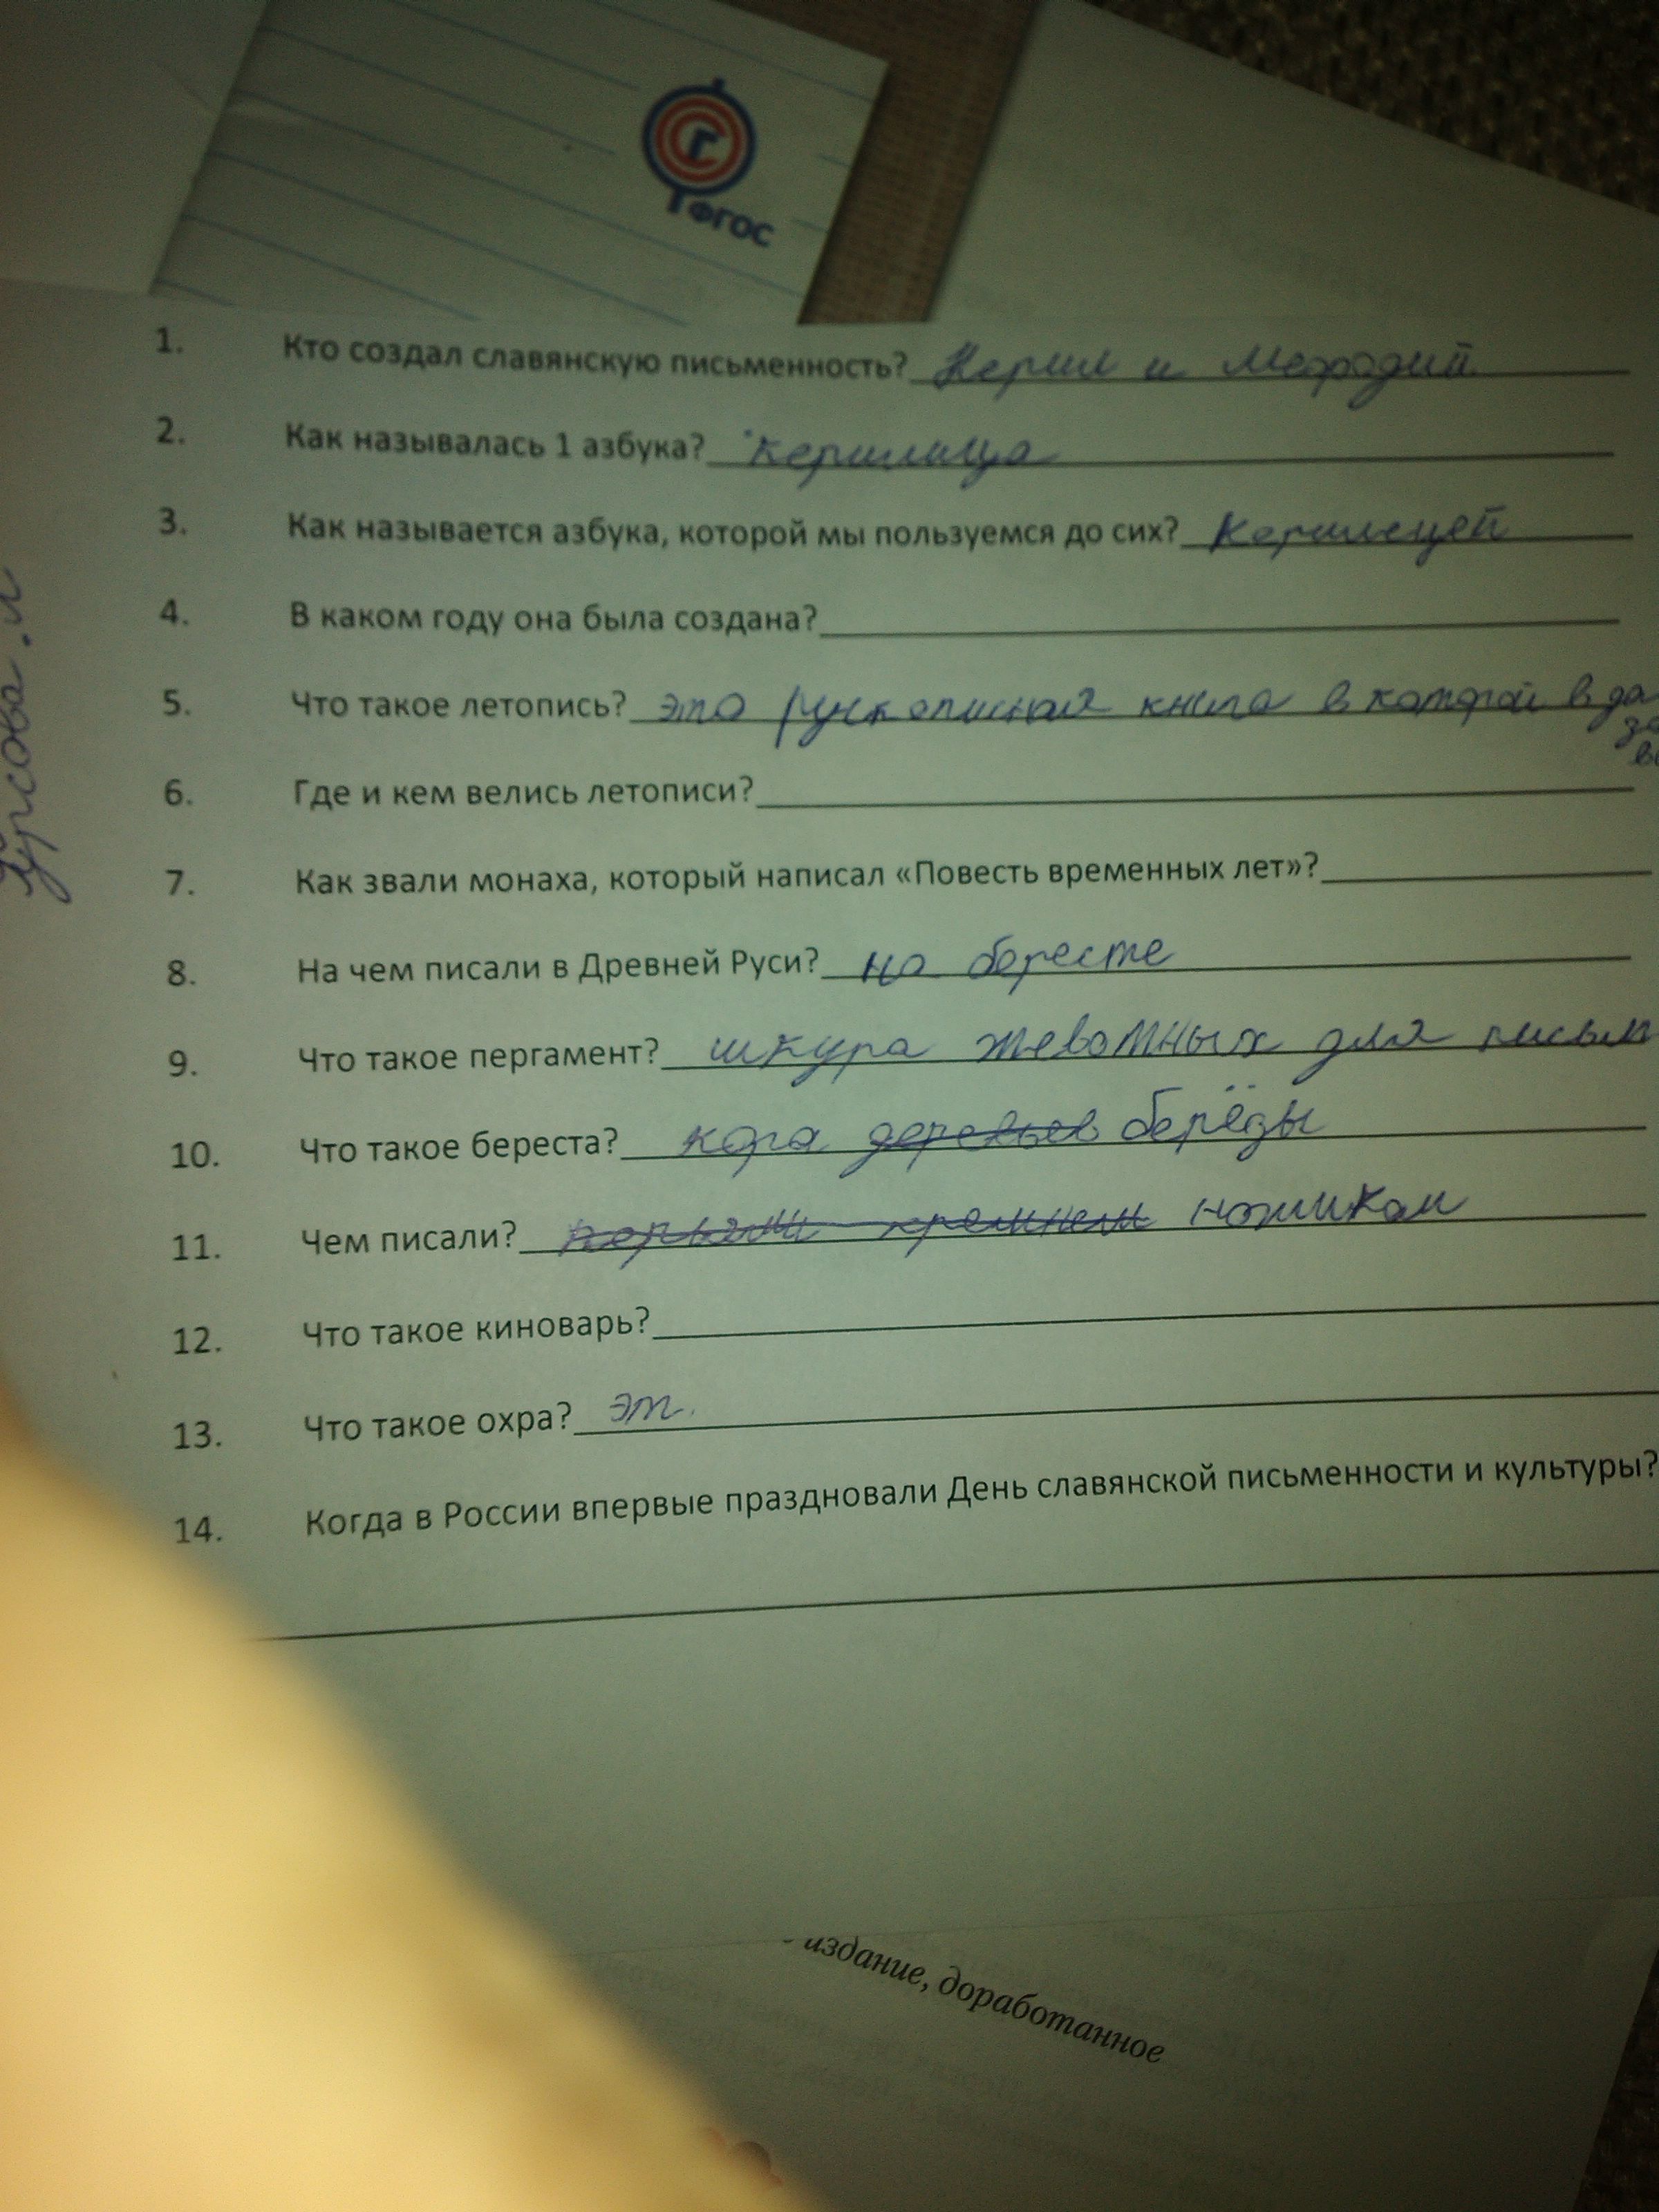 ФГОС
1. Кто создал славянскую письменность? Керил и Мефодий
2. Как называлась 1 азбука? керилица
3. Как называется азбука, которой мы пользуемся до сих? Керилецей
4. В каком году она была создана?
5. Что такое летопись? это рускописная книга в которой в да
6. Где и кем велись летописи?
7. Как звали монаха, который написал «Повесть временных лет»?
8. На чем писали в Древней Руси? на бересте
9. Что такое пергамент? шкура жевотных для письм
10. Что такое береста? кора деревьев берёзы
11. Чем писали? ножиком
12. Что такое киноварь?
13. Что такое охра? эт
14. Когда в России впервые праздновали День славянской письменности и культуры?
издание, доработанное